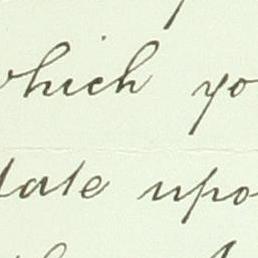 which yo
date upo